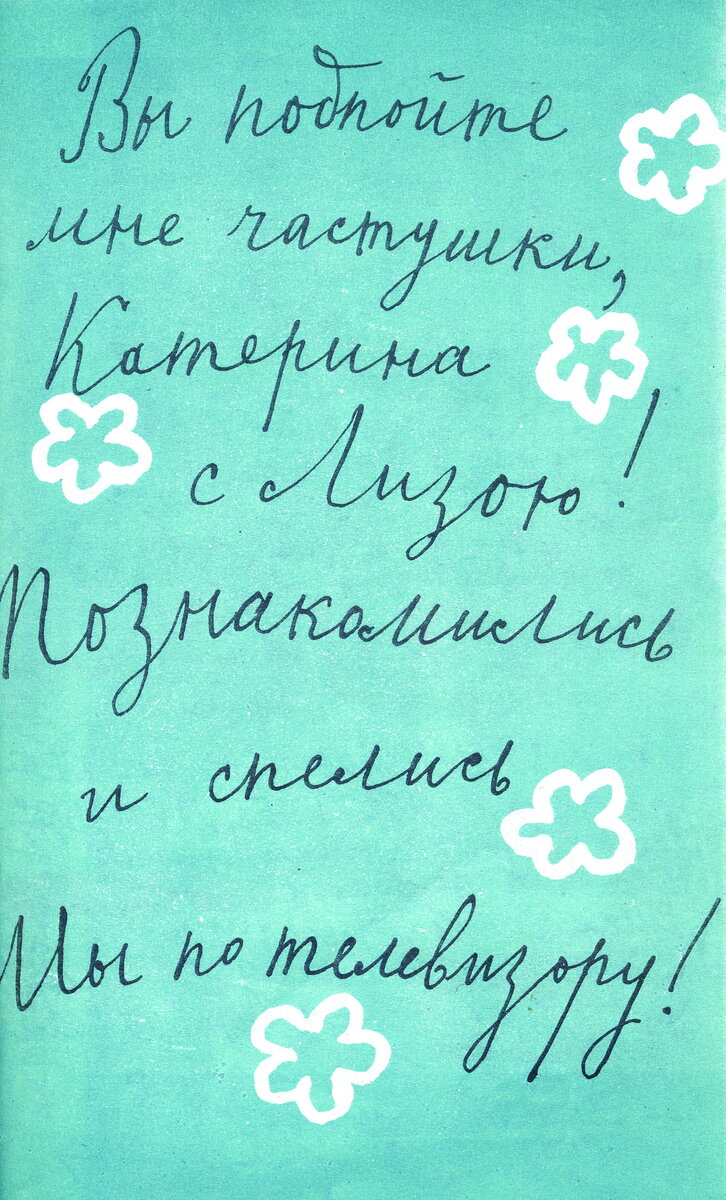 Вы подпойте
мне частушки,
Катерина
с Лизою!
Познакомились
и спелись
Мы по телевизору!